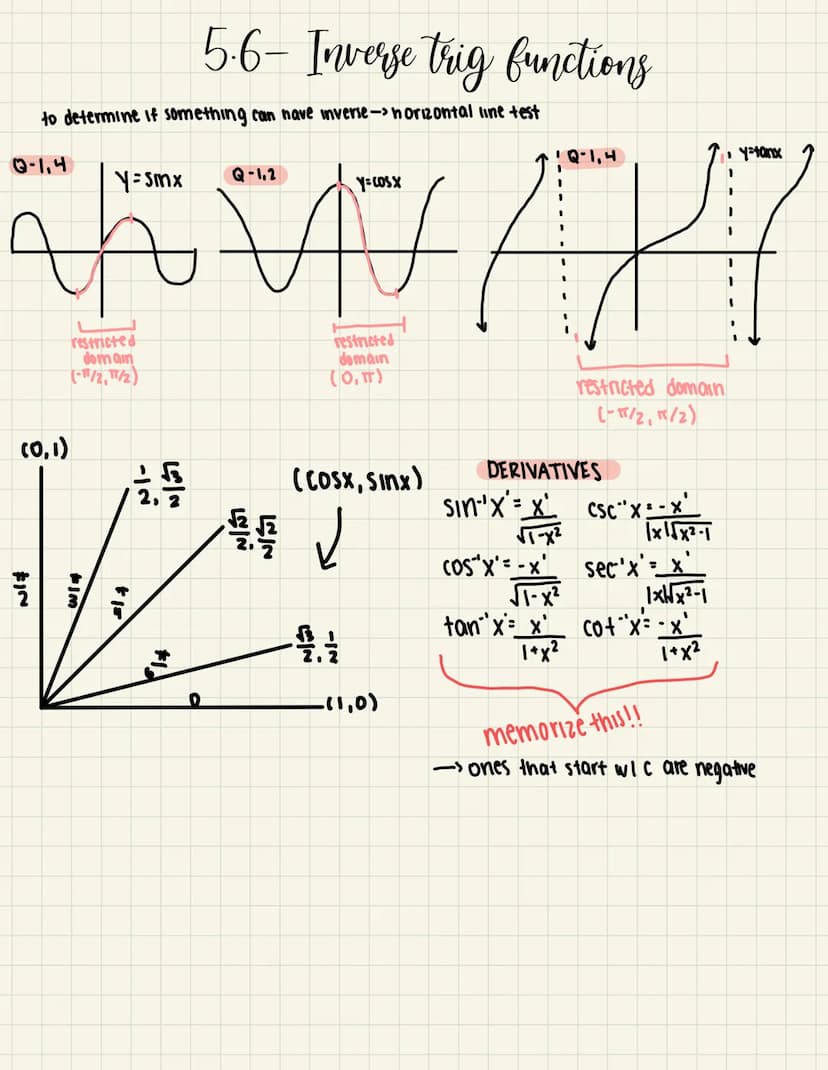 5.6 – Inverse trig functions
to determine if something can have inverse → horizontal line test
Q-1,4
y=sinx
restricted
domain
(-π/2, π/2)
Q-1,2
y=cosx
restricted
domain
(0, π)
Q-1,4
y=tanx
restricted domain
(-π/2, π/2)
(0,1)
1/2, √3/2
√2/2, √2/2
√3/2, 1/2
(1,0)
π/2
π/3
π/4
π/6
0
(cosx, sinx)
DERIVATIVES
sin⁻¹x' = x'/√1-x²
csc⁻¹x = -x'/|x|√x²-1
cos⁻¹x' = -x'/√1-x²
sec⁻¹x' = x'/|x|√x²-1
tan⁻¹x' = x'/1+x²
cot⁻¹x' = -x'/1+x²
memorize this!!
→ ones that start w/ c are negative